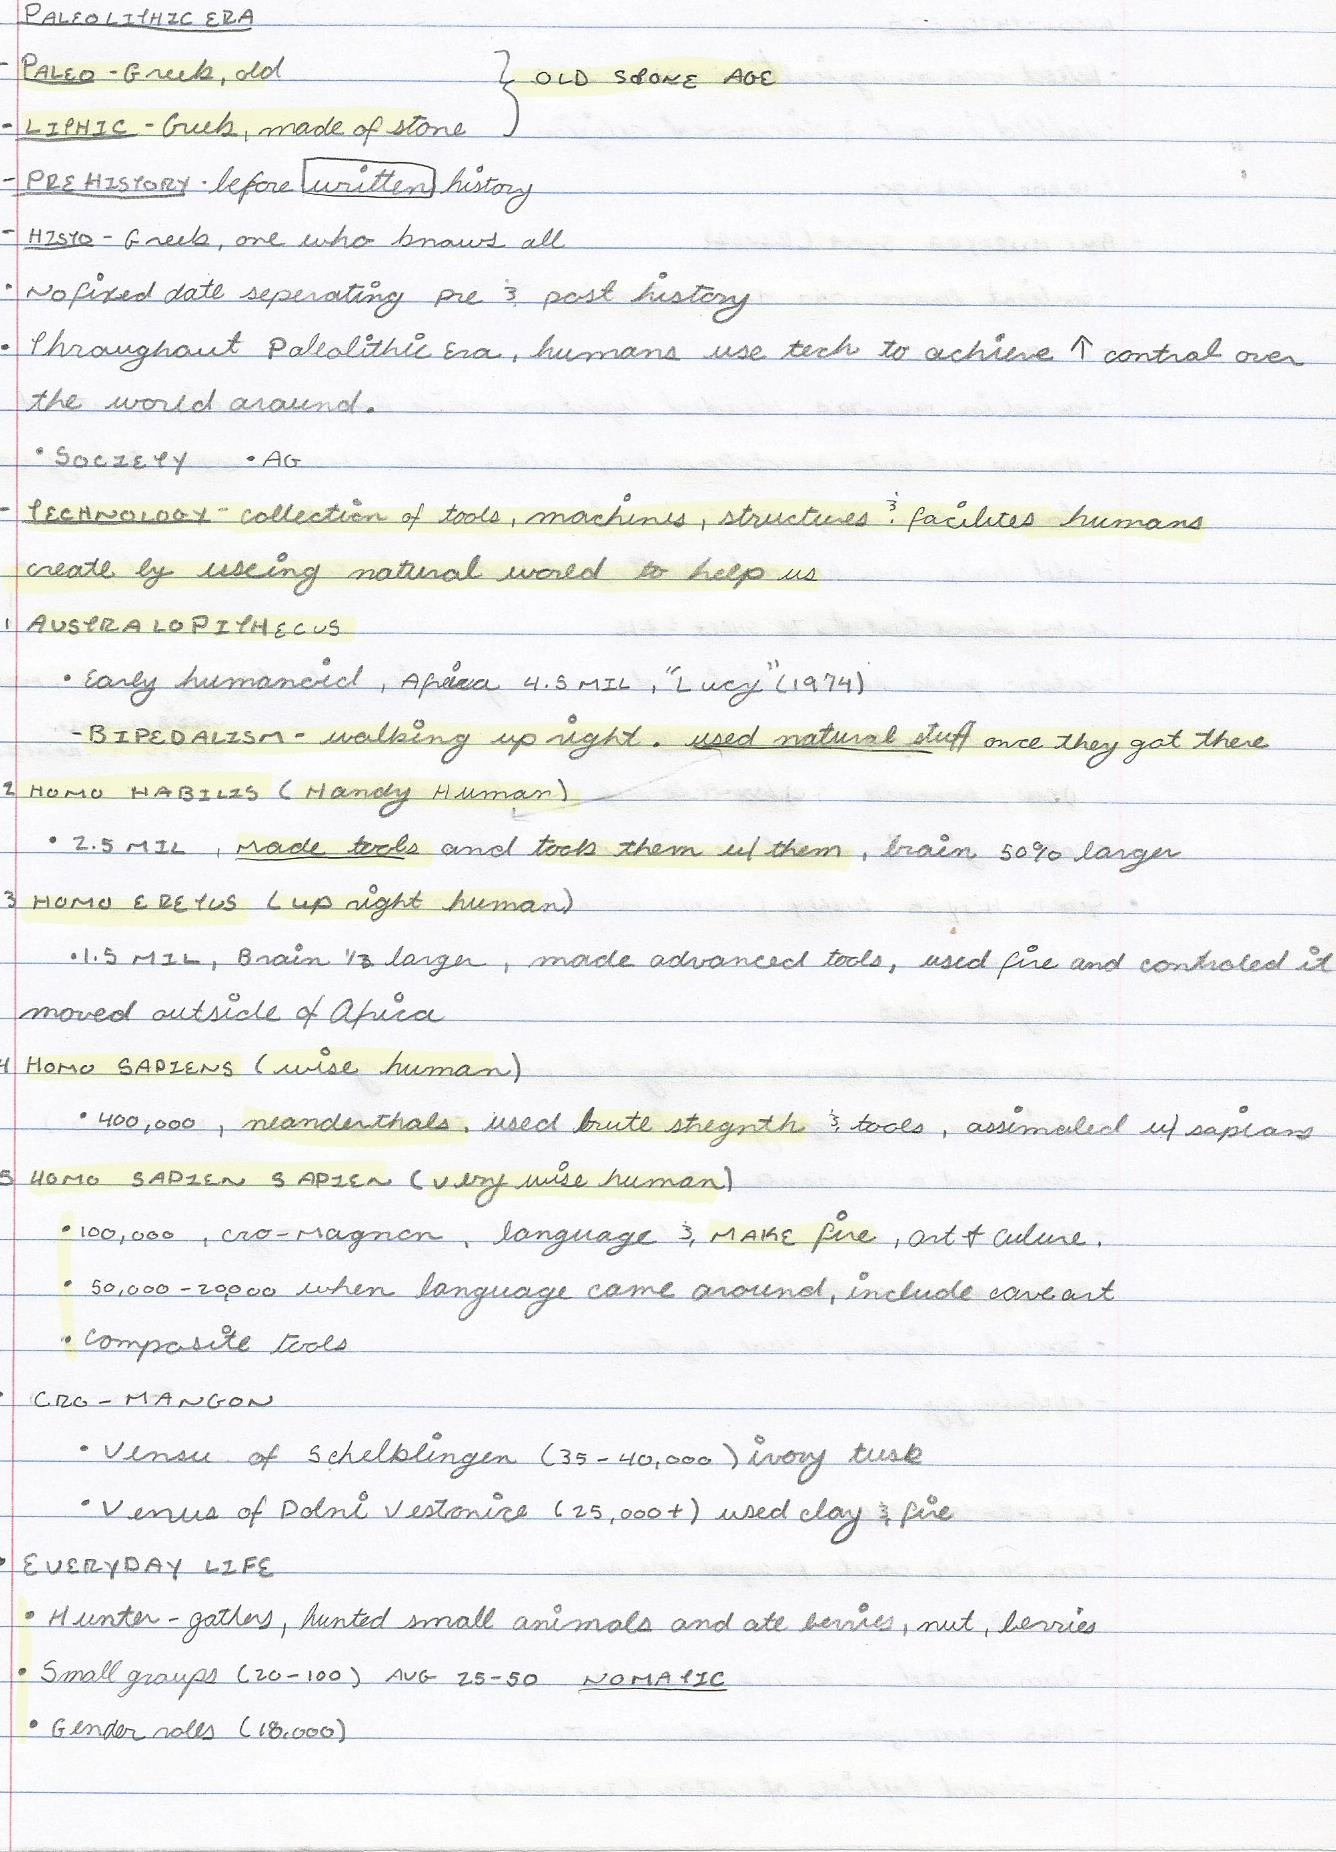 PALEOLITHIC ERA
- PALEO - Greek, old } OLD STONE AGE
- LITHIC - Greek, made of stone
- PREHISTORY - before written history
- HISTO - Greek, one who knows all
• No fixed date seperating pre & post history
• Throughout Paleolithic Era, humans use tech to achieve ↑ control over
the world around.
• SOCIETY • AG
- TECHNOLOGY - collection of tools, machines, structures & facilites humans
create by useing natural world to help us
1 AUSTRALOPITHECUS
• Early humanoid, Africa 4.5 MIL, "Lucy" (1974)
- BIPEDALISM - walking up right. used natural stuff once they got there
2 HOMO HABILIS (Handy Human)
• 2.5 MIL, made tools and took them w/ them, brain 50% larger
3 HOMO ERETUS (up right human)
• 1.5 MIL, Brain 1/3 larger, made advanced tools, used fire and controled it
moved outside of Africa
4 HOMO SAPIENS (wise human)
• 400,000, neanderthals, used brute stregnth & tools, assimaled w/ sapians
5 HOMO SAPIEN SAPIEN (very wise human)
• 100,000, cro-magnon, language & MAKE fire, art + culure.
• 50,000-20,000 when language came around, include cave art
• Composite tools
• CRO-MANGON
• Vensu of Schelklingen (35-40,000) ivory tusk
• Venus of Dolni Vestonice (25,000+) used clay & fire
• EVERYDAY LIFE
• Hunter-gathers, hunted small animals and ate berries, nut, berries
• Small groups (20-100) AVG 25-50 NOMATIC
• Gender rolls (18,000)